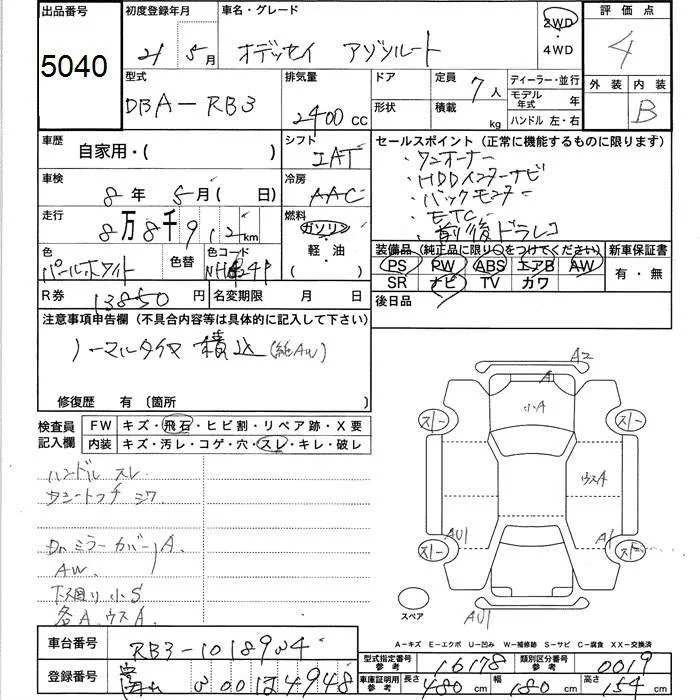 出品番号 初度登録年月 車名・グレード 2WD 評価点
5040 21 5月 オデッセイ アブソルート ・4WD 4
型式 排気量 ドア 定員 7人 ディーラー・並行 外装 内装
DBA-RB3 2400cc 形状 積載 kg モデル年式 年 B
ハンドル 左・右
車歴 自家用・( ) シフト IAT セールスポイント(正常に機能するものに限ります)
・ワンオーナー
車検 8年 5月( 日) 冷房 AAC ・HDDインターナビ
・バックモニター
走行 8万8千912km 燃料 ガソリン ・ETC
・前後ドラレコ
色 パールホワイト 色替 色コード 軽・油 ( ) 装備品(純正品に限り○をつけてください) 新車保証書
PS PW ABS エアB AW 有・無
SR ナビ TV カワ
R券 13850円 名変期限 月 日 後日品
注意事項申告欄(不具合内容等は具体的に記入して下さい)
ノーマルタイヤ 積込(純AW)
修復歴 有 〔箇所 〕
検査員記入欄 FW キズ・飛石・ヒビ割・リペア跡・X要
内装 キズ・汚レ・コゲ・穴・スレ・キレ・破レ
ハンドル スレ
シートフチ シワ
Drミラーカバー A
AW
下廻り小S
各A、ウスA
A2
A
小A
スノー スノー
ウスA
AU1 A1
スノー スノー
スペア AU1
A-キズ E-エクボ U-凹み W-補修跡 S-サビ C-腐食 XX-交換済
車台番号 RB3-1018904
型式指定番号 参考 16178 類別区分番号 参考 0019
登録番号 300 は 4948
車庫証明用 参考 長さ 480cm 幅 180cm 高さ 154cm